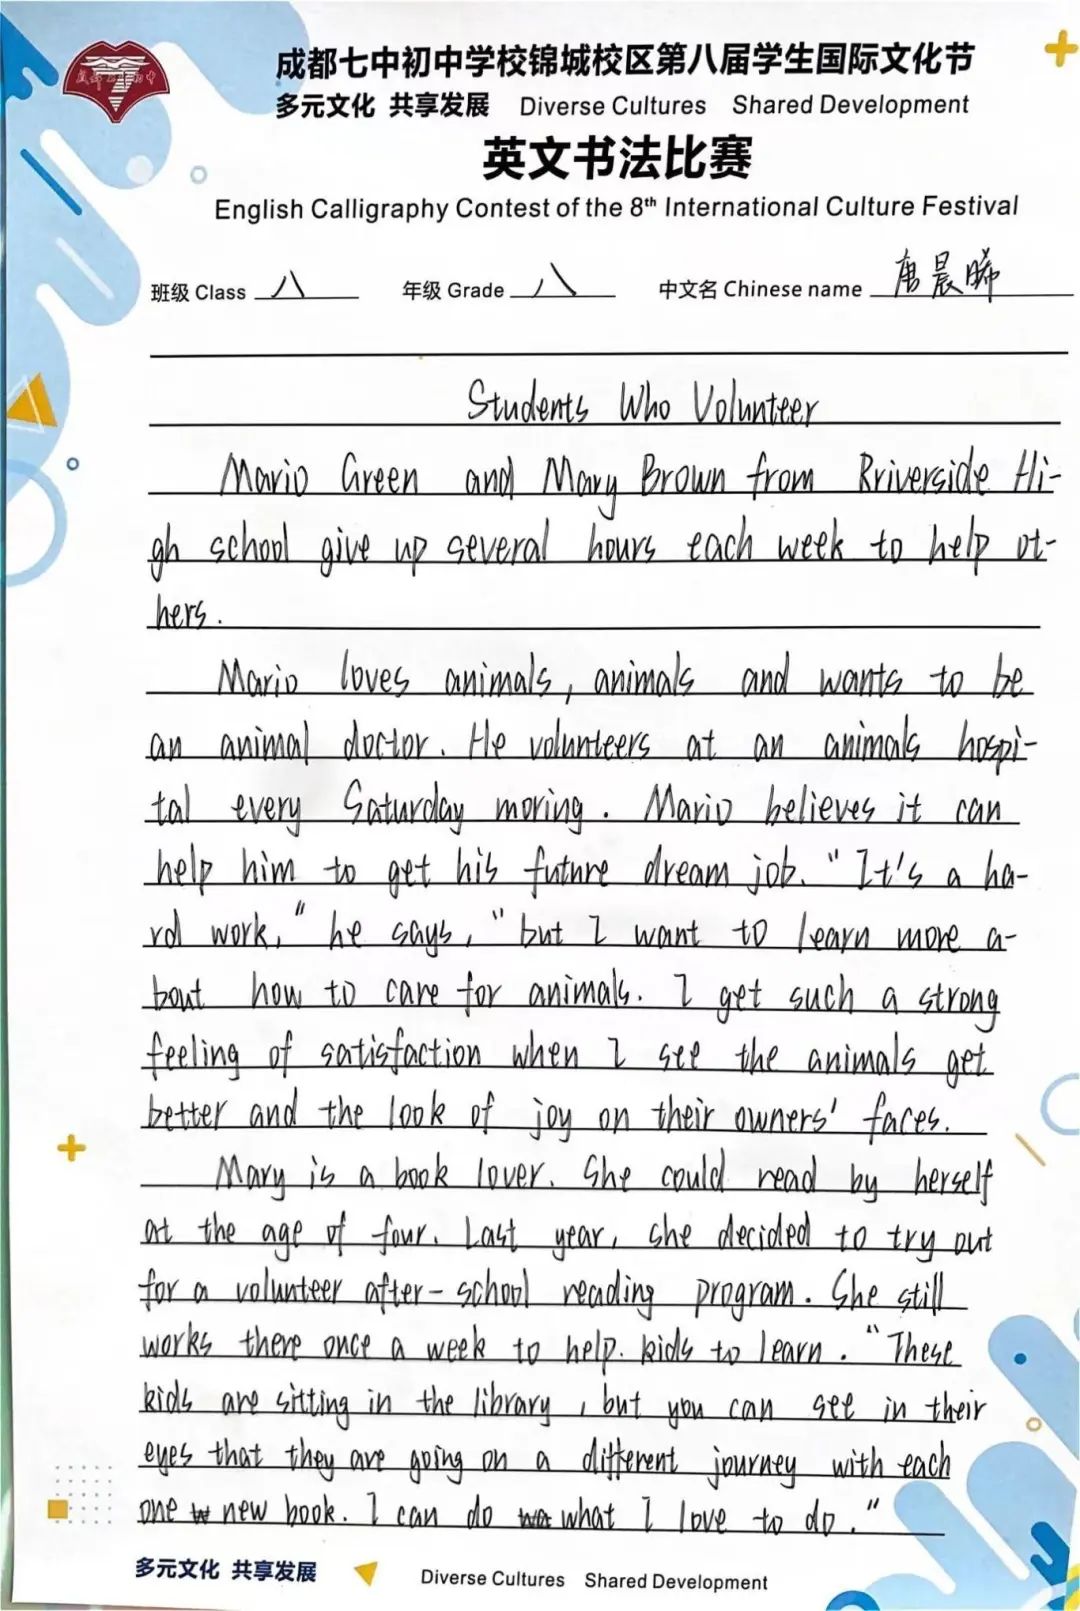 成都七中初中学校锦城校区第八届学生国际文化节
多元文化 共享发展 Diverse Cultures Shared Development
英文书法比赛
English Calligraphy Contest of the 8th International Culture Festival
班级 Class 八 年级 Grade 八 中文名 Chinese name 唐晨晞
Students Who Volunteer
Mario Green and Mary Brown from Rriverside Hi-
gh school give up several hours each week to help ot-
hers.
Mario loves animals, animals and wants to be
an animal doctor. He volunteers at an animals hospi-
tal every Saturday moring. Mario believes it can
help him to get his future dream job. "It's a ha-
rd work," he says, "but I want to learn more a-
bout how to care for animals. I get such a strong
feeling of satisfaction when I see the animals get
better and the look of joy on their owners' faces.
Mary is a book lover. She could read by herself
at the age of four. Last year, she decided to try out
for a volunteer after-school reading program. She still
works there once a week to help. kids to learn. "These
kids are sitting in the library, but you can see in their
eyes that they are going on a different journey with each
one new book. I can do what I love to do."
多元文化 共享发展 Diverse Cultures Shared Development